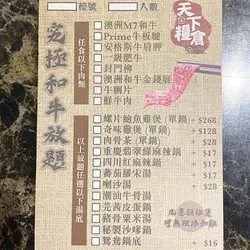 檯號 人數
天下糧倉
究極和牛放題
任食以下肉類
澳洲M7和牛
Prime牛板腱
安格斯牛肩胛
一級肥牛
封門柳
澳洲和牛金錢展
牛𦟌片
鮮牛肉
以上放題任選以下湯底
螺片鮑魚雞煲(單鍋) +$268
奇味雞煲(單鍋) +$128
肉骨茶(單鍋) +$28
重慶翡翠緣麻辣鍋 +$17
四川紅麻辣鍋 +$17
蕃茄蘿宋湯 +$28
喇沙湯 +$28
潮汕牛骨湯
芫茜皮蛋鍋
豬骨粟米湯
秘製沙嗲鍋
鴛鴦鍋底 +$16